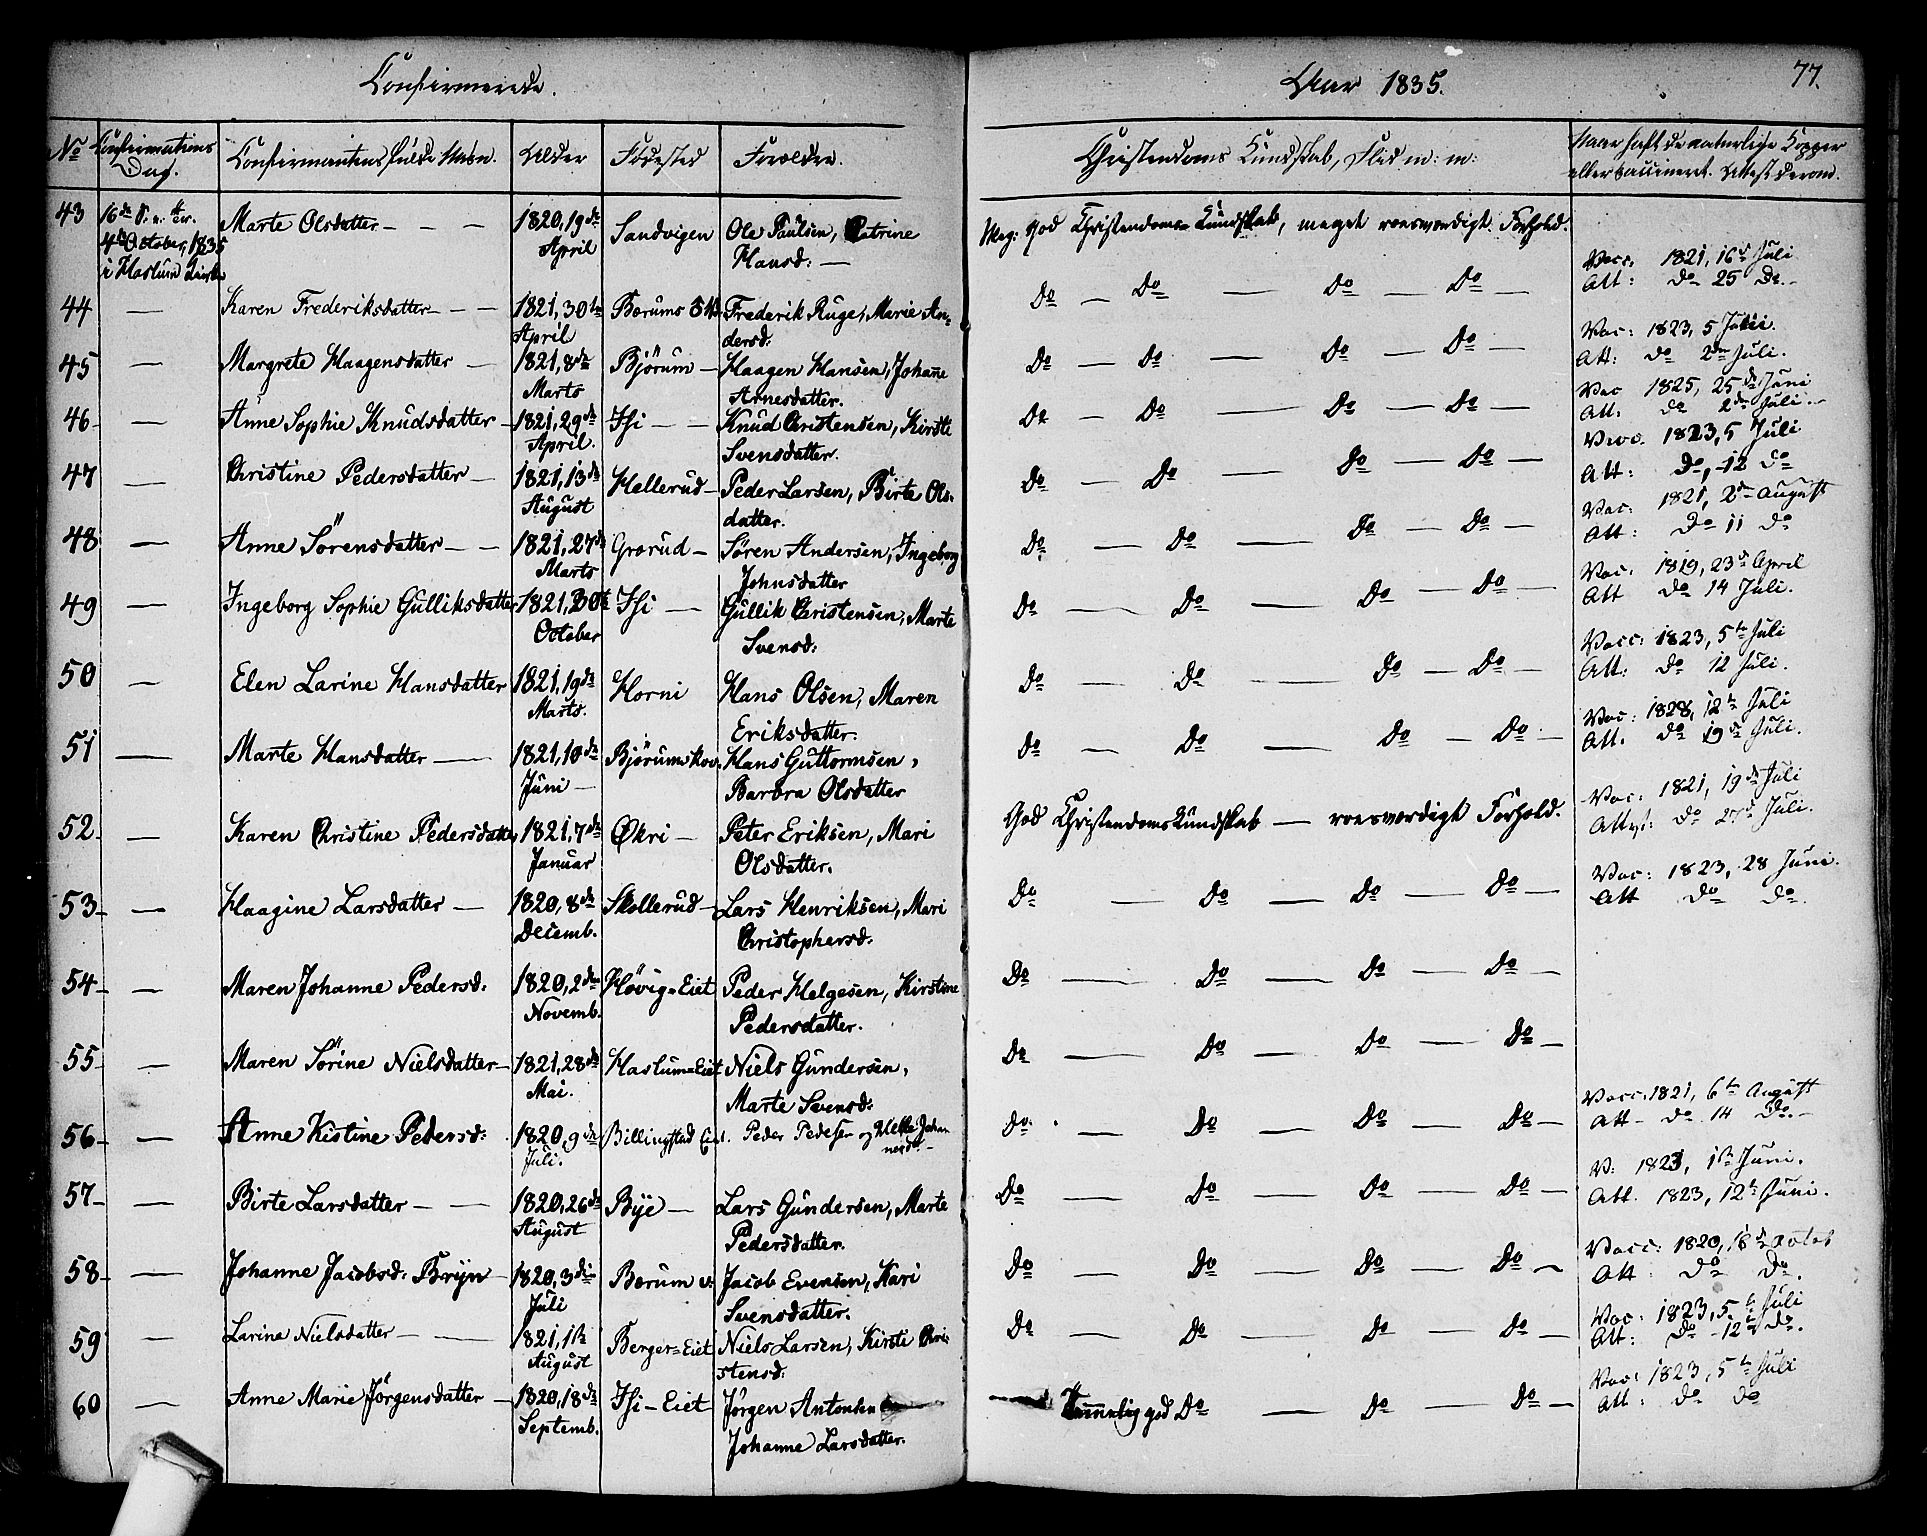 Confirmerede.
Aar 1835.
77.
No
Confirmations Dag.
Confirmantens fulde Navn.
Alder
Fødested
Forældre.
Christendoms Kundskab, Flid m: m:
Naar haft de naturlige Kopper eller vaccineret. Attest derom.
43 16de S. e. Tr. 4de October, 1835 i Haslum Kirke
Marte Olsdatter — — —
1820, 19de April
Sandvigen
Ole Paulsen, Catrine Hansd: —
Meg: god Christendoms Kundskab, meget roesværdigt Forhold.
Vacc. 1821, 16de Juli
Att: Do 25 Do. -
44 — Karen Frederiksdatter — — 1821, 30te April
Bærums V.
Frederik Ruge, Marie Andersd:
Do — Do — Do — Do —
Vac: 1823, 5 Julii.
Att: do 2den Juli.
45 — Margrete Haagensdatter — 1821, 8de Marts
Bjørum —
Haagen Hansen, Johane Arnesdatter.
Do — Do — Do — Do —
Vac 1825, 25de Juni
Att. do 2den Juli. -
46 — Anne Sophie Knudsdatter — 1821, 29de April.
Isi — —
Knud Christensen, Kirsti Svensdatter.
Do — Do — Do — Do —
Vacc. 1823, 5 Juli
Att: Do, 12 do
47 — Christine Pedersdatter — 1821, 13de August
Hellerud —
Peder Larsen, Birte Olsdatter.
Do — Do — Do — Do —
Vac: 1821, 2den August
Att: Do 11 do
48 — Anne Sörensdatter — — 1821, 27de Marts
Grorud —
Søren Andersen, Ingeborg Johnsdatter
Do — Do — Do — Do —
Vac. 1819, 23de April
Att do 14 Juli.
49 — Ingeborg Sophie Gulliksdatter 1821, 30te October
Isi —
Gullik Christensen, Marte Svensd:
Do — Do — Do — Do —
Vacc: 1823, 5te Juli
Att: do 12 Juli.
50 — Elen Larine Hansdatter 1821, 19de Marts.
Horni
Hans Olsen, Maren Eriksdatter.
Do — Do — Do — Do —
Vac: 1828, 12te Juli
Att. do 19de Juli.
51 — Marte Hansdatter — 1821, 10de Juni —
Bjørumskov.
Hans Guttormsen, Barbra Olsdatter
Do — Do — Do — Do —
Vac: 1821, 19de Juli
Attest: do 27de Juli.
52 — Karen Christine Pedersdatter 1821, 7de Januar
Økri —
Peter Eriksen, Mari Olsdatter.
God Christendoms Kundskab — roesværdigt Forhold.
Vac: 1823, 28 Juni.
Att do do.
53 — Haagine Larsdatter — 1820, 8de Decemb.
Skollerud —
Lars Henriksen, Mari Christophersd:
Do — Do — Do — Do —
54 — Maren Johanne Pedersd: 1820, 2den Novemb.
Høvig=Eiet
Peder Helgesen, Kirstine Pedersdatter.
Do — Do — Do — Do —
55 — Maren Sörine Nielsdatter — 1821, 28de Mai.
Haslum=Eiet
Niels Gundersen, Marte Svensd:
Do — Do — Do — Do —
Vacc. 1821, 6te August
Att — do 14 Do. -
56 — Anne Kistine Pedersd: 1820, 9de Juli.
Billingstad Eiet.
Peder Pedersen og
Do. — Do — Do — Do —
V: 1823, 1ste Juni.
Att. 1823, 12te Juni.
57 — Birte Larsdatter — — 1820, 26de August
Bye —
Lars Gundersen, Marte Pedersdatter.
Do — Do — Do — Do —
Vacc: 1820, 18de Octob
Att: do do.
58 — Johanne Jacobsd: Bryn — 1820, 3die Juli
Bærum v:
Jacob Evensen, Kari Svensdatter.
Do — Do — Do — Do —
Vac: 1823, 5te Juli
Att: Do 12te do.
59 — Larine Nielsdatter — — 1821, 1ste August
Berger=Eiet
Niels Larsen, Kirsti Christensd:
Do — Do — Do — Do —
Vac: 1823, 5te Juli
Att: do do
60 — Anne Marie Jörgensdatter — 1820, 18de Septemb.
Isi - Eiet
Jørgen Antonsen Johanne Larsdatter.
Temmelig god Do — Do — Do —